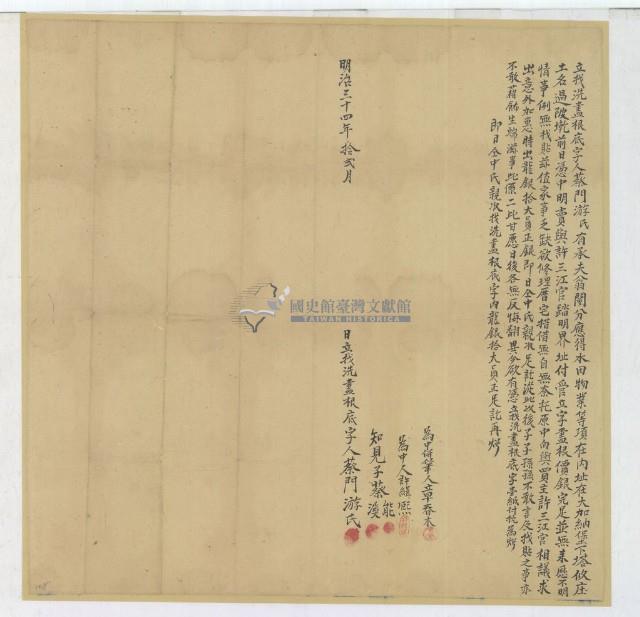 立找洗盡根底字人蔡門游氏有承夫翁鬮分應得水田物業等項在內址在大加納堡下塔攸庄
土名過陂坑前日憑中明賣與許三江官踏明界址付管立字盡根價銀完足並無来歷不明
情事例無找貼茲值家事乏缺欲修理厝宅措借無自無奈托原中向與買主許三江官相議求
出意外加惠時出龍銀拾大員正銀即日仝中氏親收足訖從此以後子子孫孫不敢言及找貼之事亦
不敢藉餙生端滋事此係二比甘愿日後各無反悔翻異今欲有憑立找洗盡根底字壹紙付執為炤
即日仝中氏親收找洗盡根底字內龍銀拾大員正足訖再炤
為中保筆人章春木
為中人許維熙
知見子蔡 能 漫
明治三十四年拾弍月 日立找洗盡根底字人蔡門游氏
國史館臺灣文獻館
TAIWAN HISTORICA